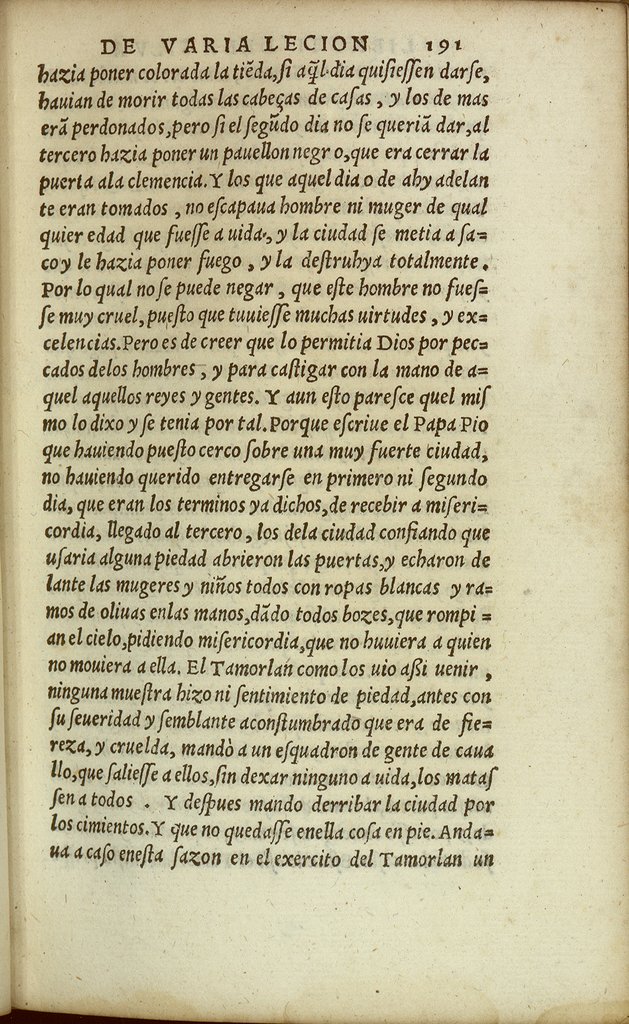 DE VARIA LECION 191
hazia poner colorada la tiẽda, ſi aq̃l dia quiſieſſen darſe,
hauian de morir todas las cabeças de caſas, y los de mas
erã perdonados, pero ſi el ſegũdo dia no ſe queriã dar, al
tercero hazia poner un pauellon negro, que era cerrar la
puerta ala clemencia. Y los que aquel dia o de ahy adelan
te eran tomados, no eſcapaua hombre ni muger de qual
quier edad que fueſſe a uida, y la ciudad ſe metia a ſa=
co y le hazia poner fuego, y la deſtruhya totalmente.
Por lo qual no ſe puede negar, que eſte hombre no fueſ=
ſe muy cruel, pueſto que tuuieſſe muchas uirtudes, y ex=
celencias. Pero es de creer que lo permitia Dios por pec=
cados delos hombres, y para caſtigar con la mano de a=
quel aquellos reyes y gentes. Y aun eſto pareſce quel miſ
mo lo dixo y ſe tenia por tal. Porque eſcriue el Papa Pio
que hauiendo pueſto cerco ſobre una muy fuerte ciudad,
no hauiendo querido entregarſe en primero ni ſegundo
dia, que eran los terminos ya dichos, de recebir a miſeri=
cordia, llegado al tercero, los dela ciudad confiando que
uſaria alguna piedad abrieron las puertas, y echaron de
lante las mugeres y niños todos con ropas blancas y ra=
mos de oliuas enlas manos, dãdo todos bozes, que rompi=
an el cielo, pidiendo miſericordia, que no huuiera a quien
no mouiera a ella. El Tamorlan como los uio aßi uenir,
ninguna mueſtra hizo ni ſentimiento de piedad, antes con
ſu ſeueridad y ſemblante aconſtumbrado que era de fie=
reza, y cruelda, mandò a un eſquadron de gente de caua
llo, que ſalieſſe a ellos, ſin dexar ninguno a uida, los mataſ
ſen a todos. Y deſpues mando derribar la ciudad por
los cimientos. Y que no quedaſſe enella coſa en pie. Anda=
ua a caſo eneſta ſazon en el exercito del Tamorlan un